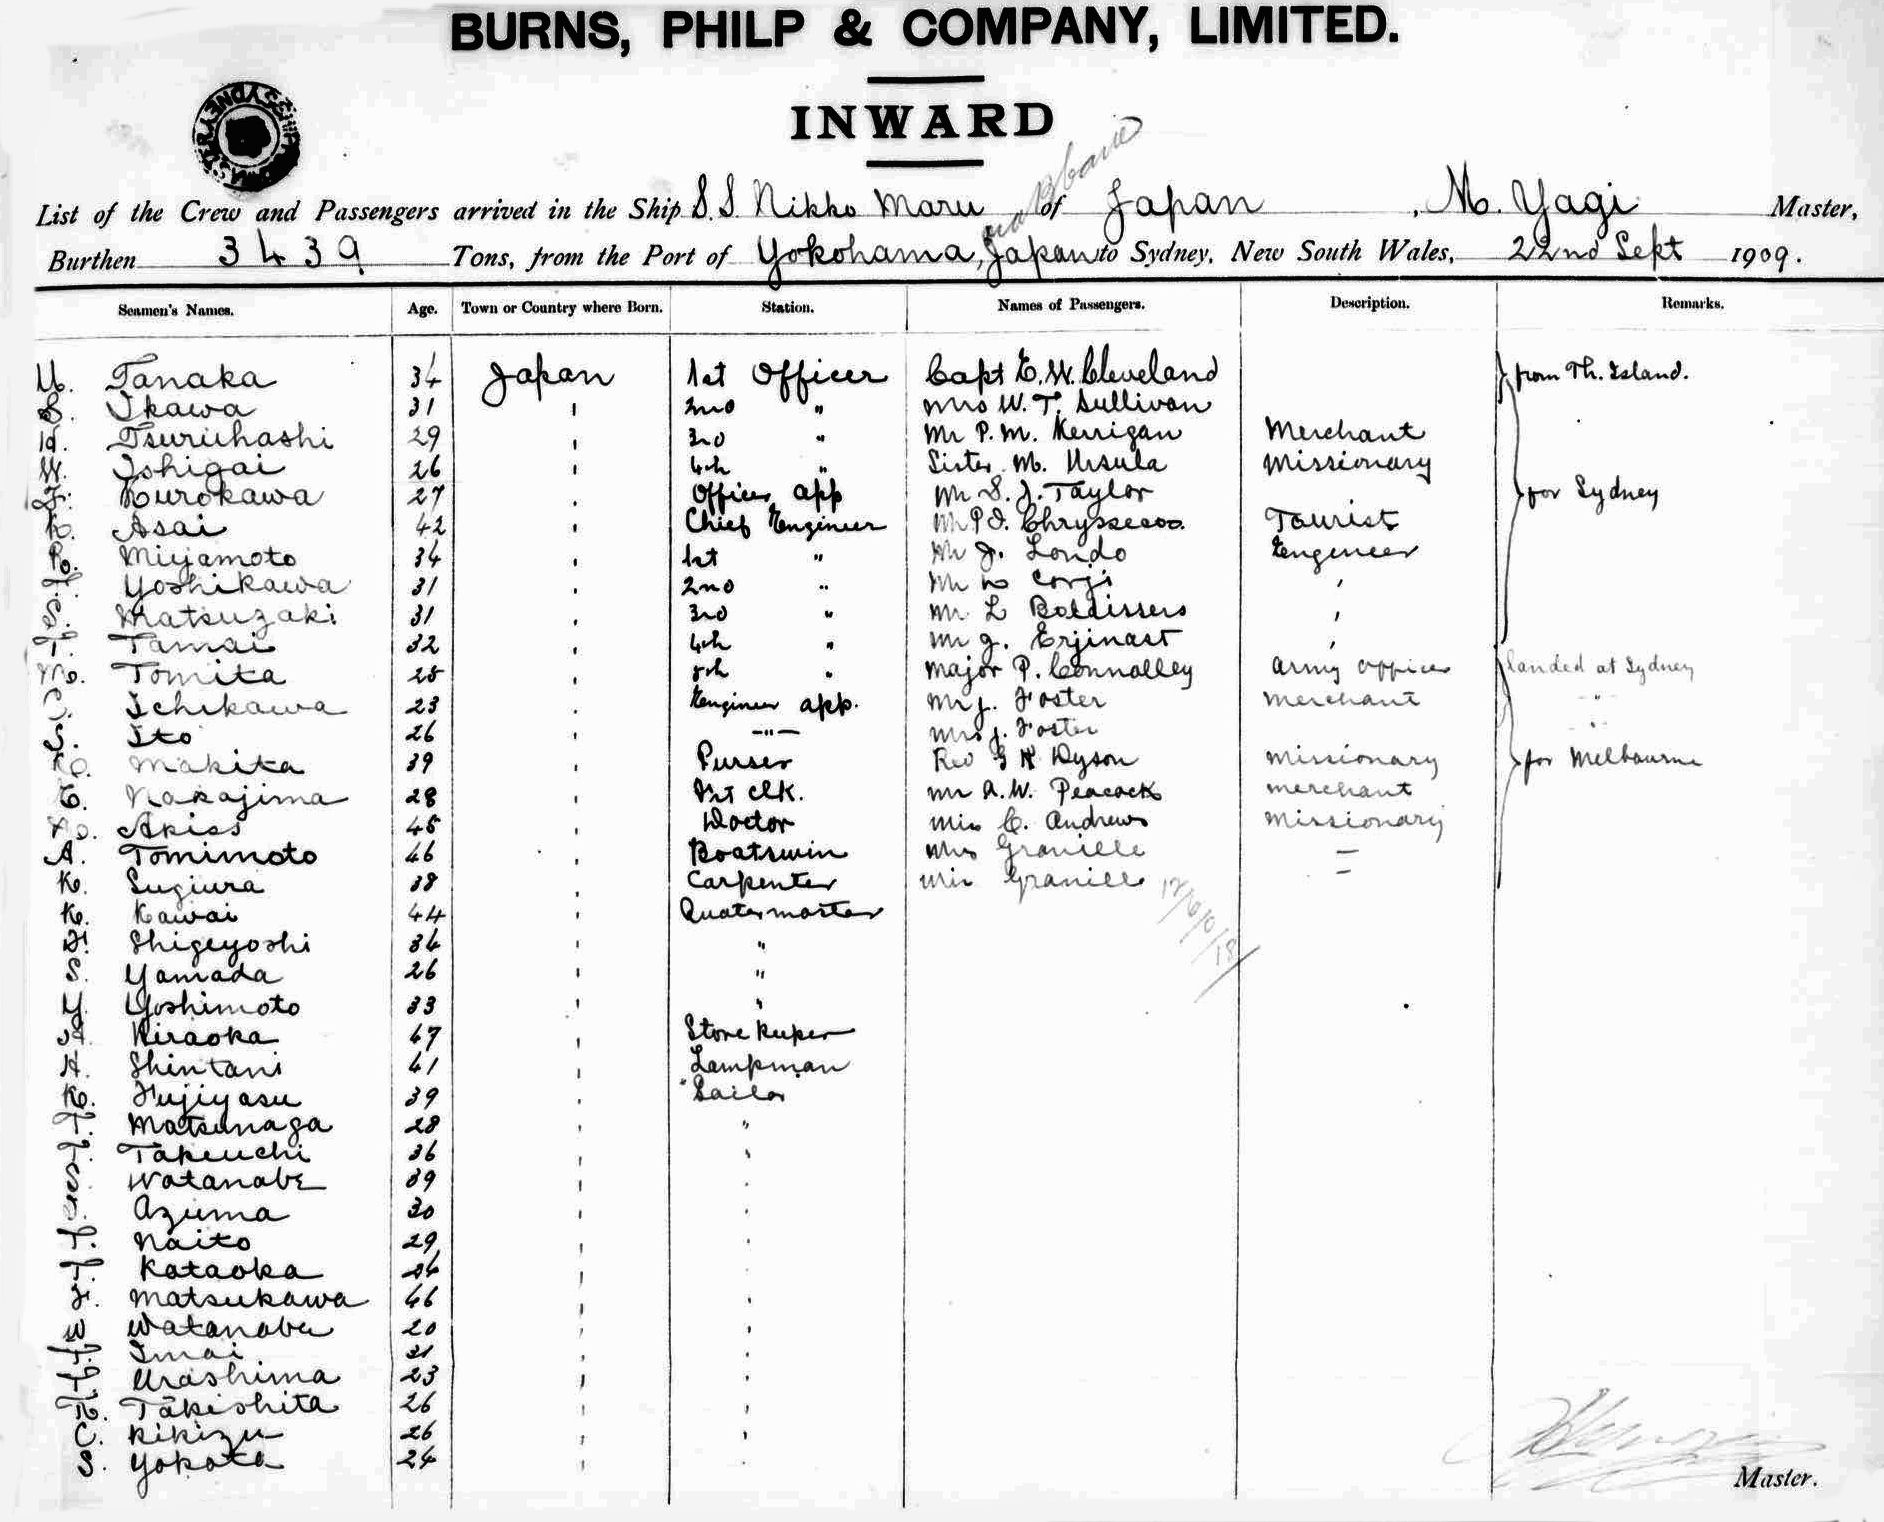 BURNS, PHILP & COMPANY, LIMITED.
INWARD
List of the Crew and Passengers arrived in the Ship S.S. Nikko Maru of Japan, M. Yagi Master,
Burthen 3439 Tons, from the Port of Yokohama, Japan to Sydney, New South Wales, 22nd Sept 1909.
Seamen's Names. Age. Town or Country where Born. Station. Names of Passengers. Description. Remarks.
U. Tanaka 34 Japan 1st Officer Capt E. W. Cleveland from Th. Island.
S. Ikawa 31 " 2nd " Mrs W. T. Sullivan
H. Tsuruhashi 29 " 3rd " Mr P. M. Kerrigan Merchant
W. Ishigai 26 " 4th " Sister M. Ursula Missionary
Kurokawa 27 " Officer app Mr S. J. Taylor for Sydney
K. Asai 42 " Chief Engineer Mr P. Tourist
R. Miyamoto 34 " 1st " Mr J. Londo Engineer
T. Yoshikawa 31 " 2nd " Mr Corji "
S. Matsuzaki 31 " 3rd " Mr L Boldissero "
T. Tamai 32 " 4th " Mr G. Erjinast "
M. Tomita 25 " 5th " Major P. Connolley Army Officer landed at Sydney
Ichikawa 23 " Engineer app. Mr J. Foster Merchant "
S. Ito 26 " -"- Mrs J. Foster "
Makita 39 " Purser Rev G H Dyson Missionary for Melbourne
E. Nakajima 28 " clk. Mr A. W. Peacock Merchant
45 " Doctor Miss C. Andrews Missionary
A. Tomimoto 46 " Boatswin Mrs Granille —
K. Sugiura 38 " Carpenter Miss Granille —
K. Kawai 44 " Quatermaster
Shigeyoshi 34 " "
S. Yamada 26 " "
Y. Yoshimoto 33 " "
Hiraoka 47 " Store keeper
H. Shintani 41 " Lampman
K. Fujiyasu 39 " Sailor
T. Matsunaga 28 " "
T. Takeuchi 36 " "
S. Watanabe 39 " "
Azuma 30 " "
T. Naito 29 " "
T. Kataoka "
F. Matsukawa 46 " "
W Watanabe 20 " "
Imai "
Urashima 23 " "
K. Takishita 26 " "
C. Kikizu 26 " "
S. Yokota 24 " "
Master.